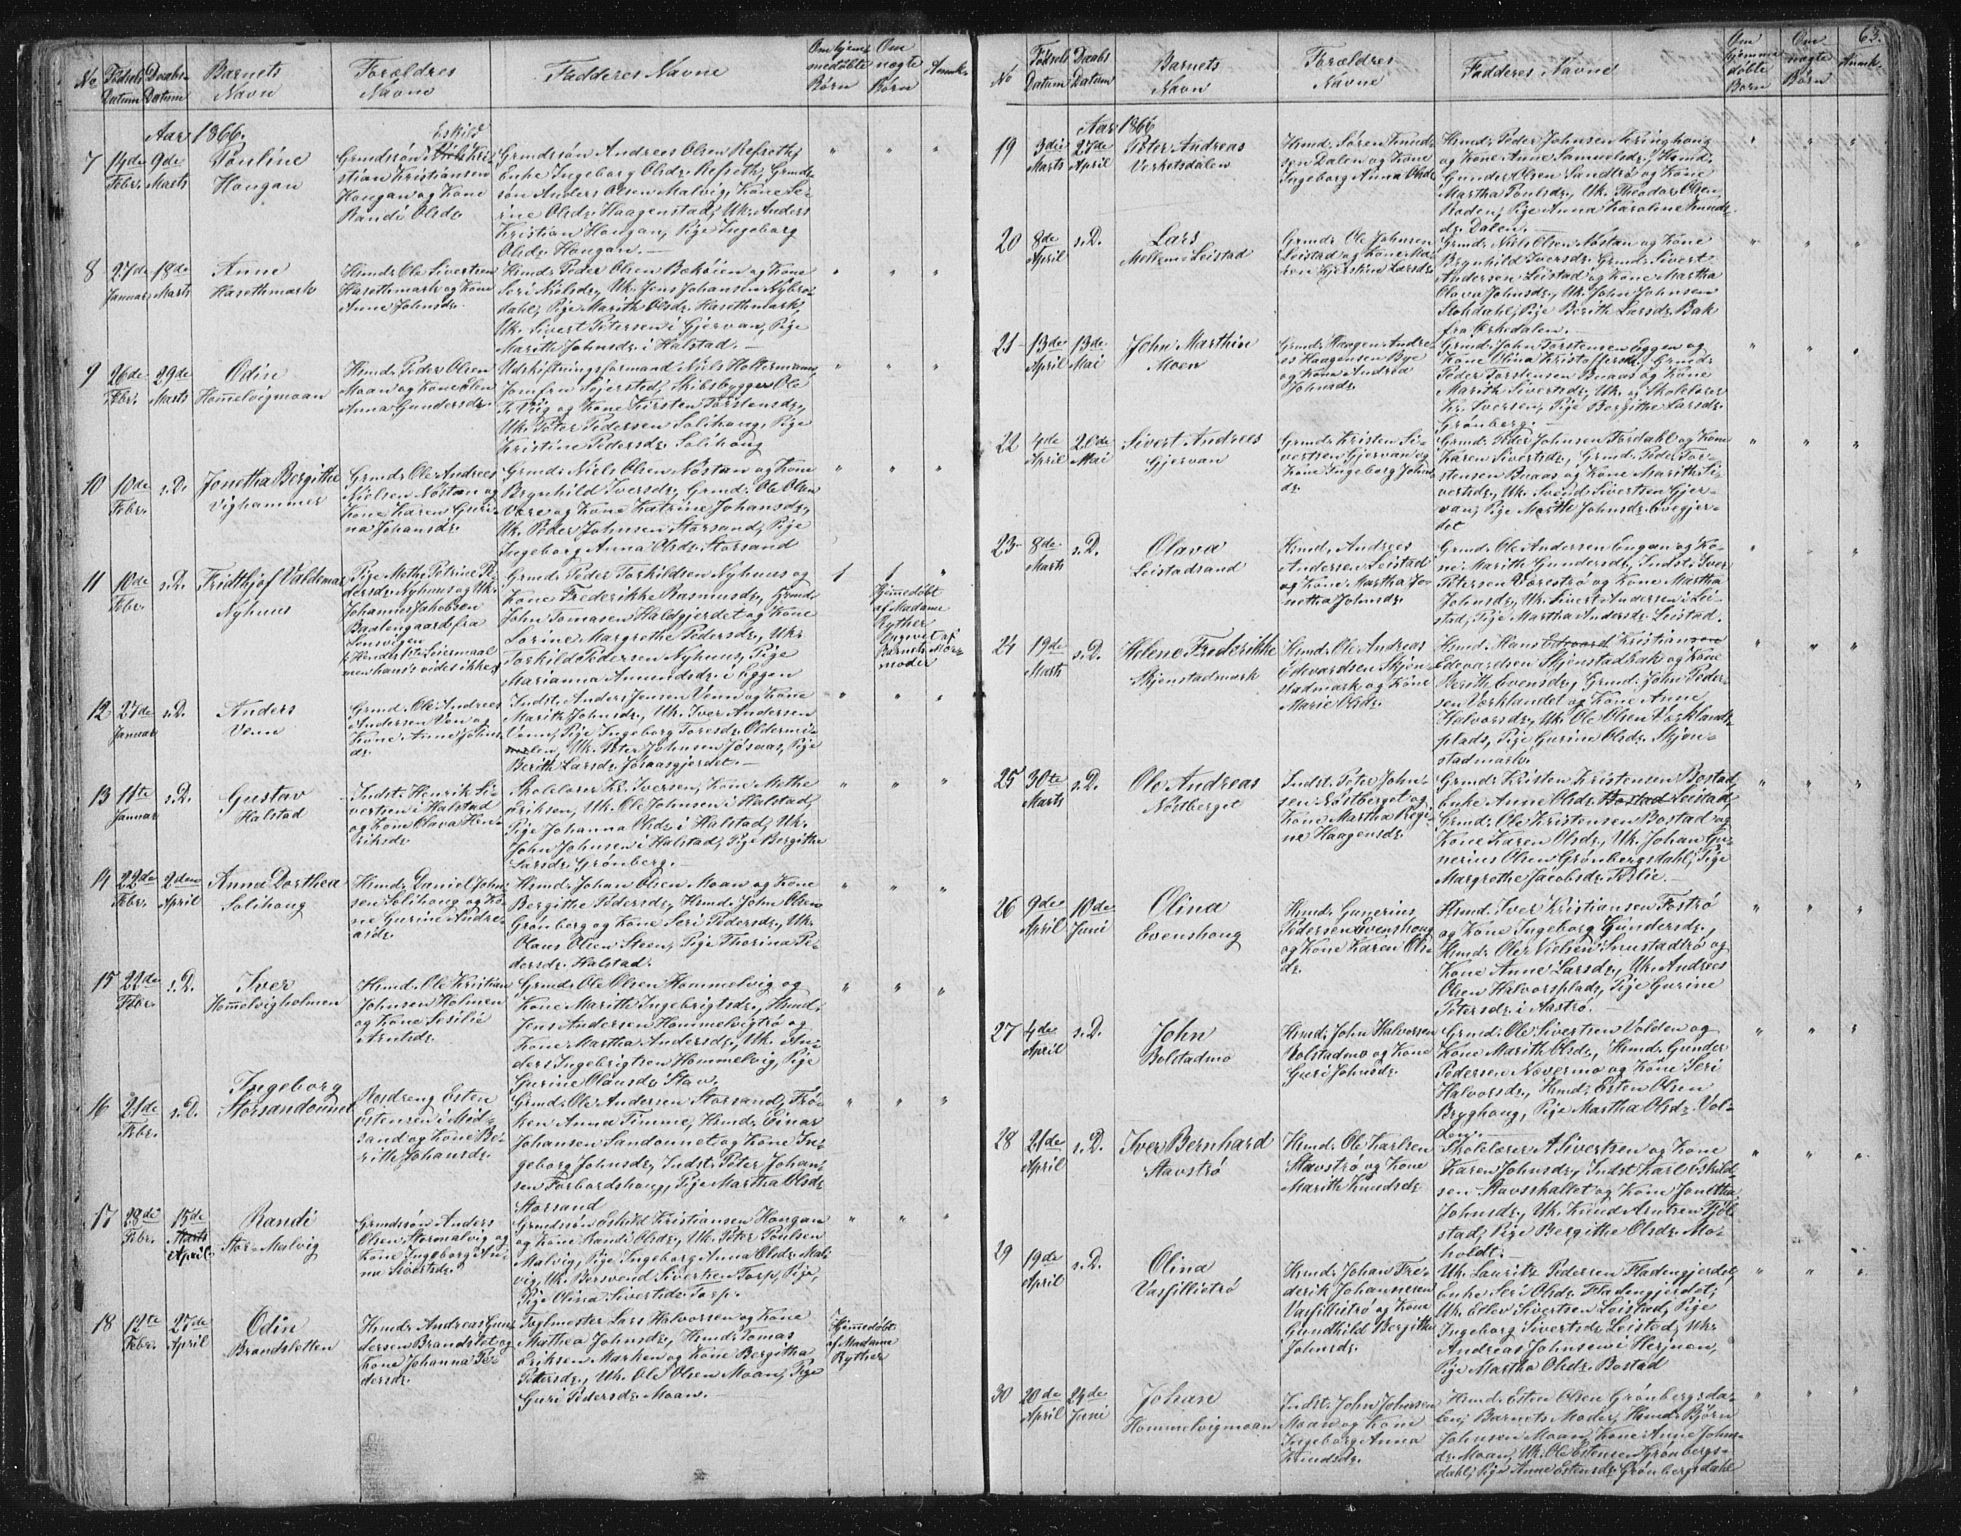 No
Fødsels Datum
Daabs Datum
Barnets Navn
Forældres Navne
Faddernes Navne
Om hjemmedøbte Børn
Om uægte Børn
Anmk.
Aar 1866.
7
14de Febr.
9de Marts
Pauline
Hougan
Eskild
Grmdssøn
stian Kristiansen
Hougan og Kone
Randi Olsdr.
Grmdssøn Andreas Olsen Refseth,
Enke Ingeborg Olsdr. Refseth, Grmds-
søn Anders Olsen Malvig, Kone Se-
rine Olsdr. Haagenstad, Uk. Anders
Kristian Hougan, Pige Ingeborg
Olsdr. Hougan.
8
27de Januar
18de Marts
Anne
Hasethmark
Hmd. Ole Sivertsen
Hasethmark og Kone
Anne Johnsdr.
Hmd. Peder Olsen og Kone
Seri Nielsdr., Uk. Jens Johansen Nybro-
dahl, Pige Marith Olsdr. Hasethmark,
Uk. Sivert Petersen i Gjervan, Pige
Marith Johnsdr. i Halstad.
9
26de Febr.
29de Marts
Odin
Hommelvigmoan
Hmd. Peder Olsen
Moan og Kone Elen
Anna Gundersdr.
Udskiftningsformand Niels Holtermann,
Jomfru Sejersted, Skibsbygger Ole
og Kone Kirsten Torstensdr.,
Uk. Peter Pedersen Solihoug, Pige
Kristine Pedersdr. Solihoug
10
10de Febr.
s.D.
Jonetha Bergitha
Vighammer
Grmd. Ole Andreas
Nielsen Nøstan og
Kone Karen Guri-
na Johansdr.
Grmd. Niels Olsen Nøstan og Kone
Brynhild Iversdr., Grmd. Ole Olsen
Være og Kone Katrine Johansdr.,
Uk. Peder Johnsen Storsand, Pige
Ingeborg Anna Olsdr. Storsand
11
10de Febr.
s.D.
Fridthjof Valdemar
Nyhuus
Pige Methe Petrine Pe-
dersdr. Nyhuus og Uk.
Johannes Jakobsen
Baklengaard fra
Levigen
Grmd. Peder Torkildsen Nyhuus og
Kone Frederikke Rasmusdr., Grmd.
John Tomasen Haldgjerdet og Kone
Lorine Margrethe Pedersdr., Uk.
Torkild Pedersen Nyhuus, Pige
Marianna Amundsdr. i Eggen
1
1
Hjemmedøbt
af Madame
Ryther
Angivet af
Barnets Mor-
moder
12
27de Januar
s.D.
Anders
Venn
Grmd. Ole Andreas
Andersen Ven og
Kone Anne Johns-
dr.
Indst. Anders Jensen Venn og Kone
Marith Johnsdr., Uk. Iver Andersen
Venn, Pige Ingeborg Toresdr. Oldermi-
len, Uk. Peter Johnsen Jøsaas, Pige
Berith Larsdr. Jøsaasgjerdet.
13
11te Januar
s.D.
Gustav
Halstad
Indst. Henrik Si-
vertsen i Halstad
og Kone Olava Hen-
riksdr.
Skolelærer Kr. Iversen, Kone Methe
Eriksen, Uk. Ole Johnsen i Halstad,
Pige Johanna Olsdr. i Halstad, Uk.
John Johnsen i Halstad, Pige Bergithe
Larsdr. Grønberg.
14
22de Febr.
2den April
Anna Dorthea
Solihoug
Hmd. Daniel John-
sen Solihoug og Ko-
ne Gurine Andre-
asdr.
Hmd. Johan Olsen Moan og Kone
Bergithe Pedersdr., Hmd. John Olsen
Grønberg og Kone Seri Pedersdr., Uk.
Olaus Olsen Steen, Pige Thorina Pe-
dersdr. Halstad.
15
22de Febr.
s.D.
Iver
Hommelvigholmen
Hmd. Ole Kristian
Johnsen Holmen
og Kone Sesilie
Arntsdr.
Grmd. Ole Olsen Hommelvig og
Kone Marith Ingebrigtsdr., Hmd.
Jens Andersen Hommelvigtrø og
Kone Martha Andersdr., Uk. An-
ders Ingebrigtsen Hommelvig, Pige
Gurine Olausdr. Stav.
16
21de Febr.
s.D.
Ingeborg
Storsandounet
Nordreng Esten
Estensen i Mid-
sand og Kone Be-
rith Johansdr.
Grmd. Ole Andersen Storsand, Frø-
ken Anna Timme, Hmd. Einar
Johansen Sandounet og Kone In-
geborg Johnsdr., Indst. Peter Johan-
sen Forbordshoug, Pige Martha Olsdr.
Storsand
17
28de Febr.
15de Marts April
Randi
Stor-Malvig
Grmdssøn Anders
Olsen Stormalvig og
Kone Ingeborg An-
na Sivertsdr.
Grmdssøn Eskild Kristiansen Hougan
og Kone Randi Olsdr., Uk. Peter Poulsen
Malvig, Pige Ingeborg Anna Olsdr. Mal-
vig, Uk. Bersvend Sivertsen Torp, Pige,
Pige Olina Sivertsdr. Torp.
18
12te Febr.
27de April
Odin
Brandsletten
Hmd. Andreas Gun-
dersen Brandslet og
Kone Johanna Pe-
dersdr.
Teglmester Lars Halvorsen og Kone
Mathea Johnsdr., Hmd. Tomas
Eriksen Marken og Kone Bergitha
Petersdr., Uk. Ole Olsen Moan, Pige
Guri Pedersdr. Moan.
Hjemmedøbt
af Madame
Ryther
63.
No
Fødsels Datum
Daabs Datum
Barnets Navn
Forældres Navne
Faddernes Navne
Om hjemmedøbte Børn
Om uægte Børn
Anmk.
Aar 1866
19
3die Marts
27de April
Peter Andreas
Verketsdalen
Hmd. Søren Knud-
sen Dalen og Kone
Ingeborg Anna Olsdr.
Hmd. Peder Johnsen Kringhoug
og Kone Anne Samuelsdr., Hmd.
Gunder Olsen Sandtrø og Kone
Martha Poulsdr., Uk. Theodor Olsen
Roden, Pige Anna Karoline Knuds-
dr. Dalen.
20
8de April
s.D.
Lars
Mellem-Leistad
Grmd. Ole Johnsen
Leistad og Kone Ma-
ren Kjerstine Larsdr.
Grmd. Niels Olsen Nøstan og Kone
Brynhild Iversdr., Grmd. Sivert
Andersen Leistad og Kone Martha
Olava Johnsdr., Uk. John Johnsen
Stokdahl, Pige Berith Larsdr. Bak
fra Orkedalen.
21
13de April
13de Mai
John Marthin
Moen
Grmd. Haagen Andre-
as Haagensen Bye
og Kone Andrea
Johnsdr.
Grmd. John Torstensen Eggen og
Kone Olina Kristoffersdr., Grmd.
Peder Torstensen Buaas og Kone
Marith Sivertsdr., Uk. Skolelærer
Kr. Iversen, Pige Bergithe Larsdr.
Grønberg.
22
4de April
20de Mai
Sivert Andreas
Gjervan
Grmd. Kristen Si-
vertsen Gjervan og
Kone Ingeborg Johns-
dr.
Grmd. Peder Johnsen Fordahl og Kone
Karen Sivertsdr., Grmd. Peder Tor-
stensen Buaas og Kone Marith Si-
vertsdr., Uk. Svend Sivertsen Gjer-
van, Pige Marith Johnsdr.
23
8de Marts
s.D.
Olava
Leistadsand
Hmd. Andreas
Andersen Leistad
og Kone Martha Jo-
netha Johnsdr.
Grmd. Ole Andersen Engan og Ko-
ne Marith Gundersdr., Indst. Iver
Petersen Værestrø og Kone Martha
Johnsdr., Uk. Sivert Andersen i Lei-
stad, Pige Martha Andersdr. Leistad.
24
19de Marts
s.D.
Helene Frederikke
Skjenstadmark
Hmd. Ole Andreas
Edvardsen Skjen-
stadmark og Kone
Marie Olsdr.
Hmd. Hans Edvard Kristiansen
Edvardsen Skjenstadbak og Kone
Berith Evensdr., Grmd. John Peder-
sen Værklandet og Kone Anne
Halvorsdr., Uk. Ole Olsen Værklands-
plads, Pige Gurine Olsdr. Skjen-
stadmark.
25
30te Marts
s.D.
Ole Andreas
Nøstberget
Indst. Peter John-
sen Nøstberget og
Kone Martha Regi-
na Haagensdr.
Grmd. Kristen Kristensen Bostad,
Enke Anne Olsdr. Bostad Leistad,
Grmd. Ole Kristensen Bostad og
Kone Karen Olsdr., Uk. Johan Gu-
nerius Olsen Grønbergsdahl, Pige
Margrethe Jacobsdr.
26
9de April
10de Juni
Olina
Evenshoug
Hmd. Gunerius
Pedersen Evenshoug
og Kone Karen Ols-
dr.
Hmd. Iver Kristiansen Fostrø
og Kone Ingeborg Gundersdr.,
Hmd. Ole Nielsen Smustadtrø og
Kone Anne Larsdr., Uk. Andreas
Olsen Halvorsplads, Pige Gurine
Petersdr. i Aastrø.
27
4de April
s.D.
John
Bolstadmo
Hmd. John Halvorsen
Bolstadmo og Kone
Guri Johnsdr.
Grmd. Ole Sivertsen Volden og
Kone Marith Olsdr., Hmd. Gunder
Pedersen Nævermo og Kone Seri
Halvorsdr., Hmd. Esten Olsen
Bryghoug, Pige Martha Olsdr. Vol-
den.
28
21de April
s.D.
Iver Bernhard
Stavstrø
Hmd. Ole Karlsen
Stavstrø og Kone
Marith Knudsdr.
Skolelærer A Sivertsen og Kone
Karen Johnsdr., Indst. Karl Eskild-
sen Stavshallet og Kone Jonetha
Johnsdr., Uk. Knud Arntsen Fjøl-
stad, Pige Bergithe Olsdr. Mo-
holdt.
29
19de April
s.D.
Olina
Vasfillietrø
Hmd. Johan Fre-
derik Johannesen
Vasfillietrø og Kone
Gundhild Bergitha
Johnsdr.
Uk. Lauritz Pedersen Fladengjerdet,
Enke Seri Olsdr. Fladengjerdet,
Uk. Ellev Sivertsen Leistad, Pige
Ingeborg Sivertsdr. Leistad, Uk.
Andreas Johnsen i Hernon,
Pige Martha Olsdr. Bostad
30
20de April
24de Juni
Johan
Hommelvigmoan
Indst. John Johnsen
Moan og Kone
Ingeborg Anna
Knudsdr.
Hmd. Esten Olsen Grønbergsda-
len, Barnets Moder, Hmd. Bjørn
Johnsen Moan, Kone Anne Johns-
dr. Moan, Uk. Ole Estensen Grønbergs-
dahl, Pige Anne Estensdr. Grønbergsdahl